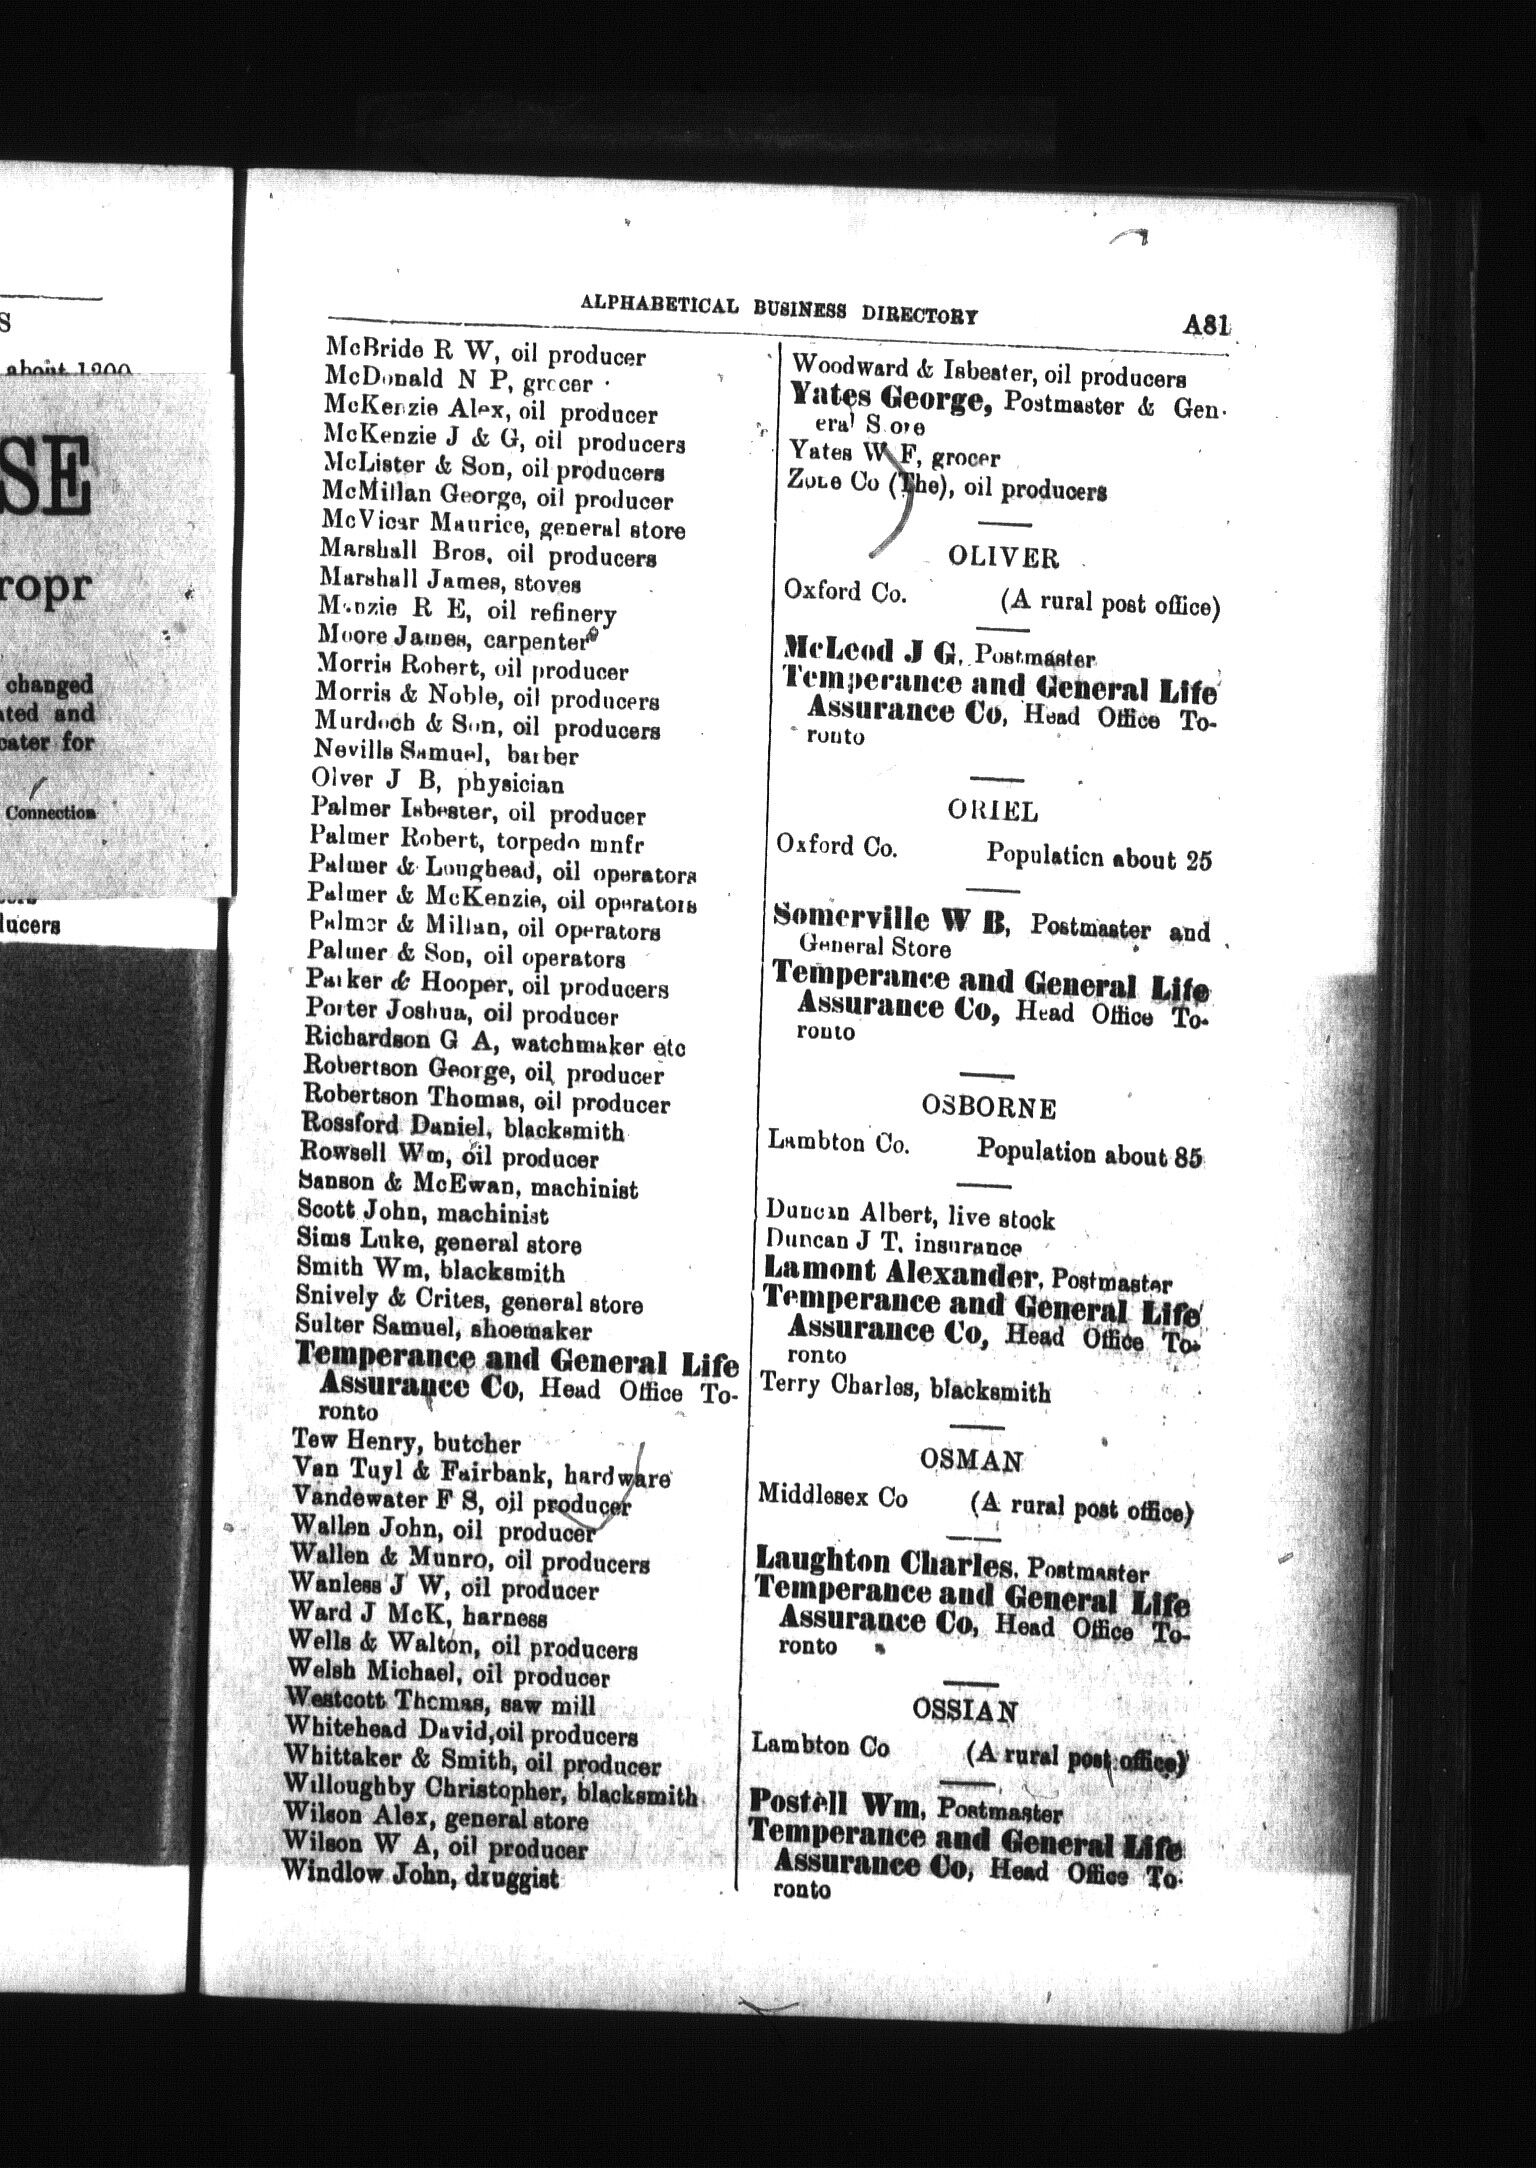 S
about 1200
SE
ropr
changed
ated and
cater for
Connection
ducers
ALPHABETICAL BUSINESS DIRECTORY A81
McBride R W, oil producer
McDonald N P, grocer
McKenzie Alex, oil producer
McKenzie J & G, oil producers
McLister & Son, oil producers
McMillan George, oil producer
McVicar Maurice, general store
Marshall Bros, oil producers
Marshall James, stoves
Menzie R E, oil refinery
Moore James, carpenter
Morris Robert, oil producer
Morris & Noble, oil producers
Murdoch & Son, oil producers
Nevills Samuel, barber
Olver J B, physician
Palmer Isbester, oil producer
Palmer Robert, torpedo mnfr
Palmer & Loughead, oil operators
Palmer & McKenzie, oil operators
Palmer & Millan, oil operators
Palmer & Son, oil operators
Parker & Hooper, oil producers
Porter Joshua, oil producer
Richardson G A, watchmaker etc
Robertson George, oil producer
Robertson Thomas, oil producer
Rossford Daniel, blacksmith
Rowsell Wm, oil producer
Sanson & McEwan, machinist
Scott John, machinist
Sims Luke, general store
Smith Wm, blacksmith
Snively & Crites, general store
Sulter Samuel, shoemaker
Temperance and General Life
Assurance Co, Head Office To-
ronto
Tew Henry, butcher
Van Tuyl & Fairbank, hardware
Vandewater F S, oil producer
Wallen John, oil producer
Wallen & Munro, oil producers
Wanless J W, oil producer
Ward J McK, harness
Wells & Walton, oil producers
Welsh Michael, oil producer
Westcott Thomas, saw mill
Whitehead David, oil producers
Whittaker & Smith, oil producer
Willoughby Christopher, blacksmith
Wilson Alex, general store
Wilson W A, oil producer
Windlow John, druggist
Woodward & Isbester, oil producers
Yates George, Postmaster & Gen-
eral Store
Yates W F, grocer
Co (The), oil producers
OLIVER
Oxford Co. (A rural post office)
McLeod J G, Postmaster
Temperance and General Life
Assurance Co, Head Office To-
ronto
ORIEL
Oxford Co. Population about 25
Somerville W B, Postmaster and
General Store
Temperance and General Life
Assurance Co, Head Office To-
ronto
OSBORNE
Lambton Co. Population about 85
Duncan Albert, live stock
Duncan J T, insurance
Lamont Alexander, Postmaster
Temperance and General Life
Assurance Co, Head Office To-
ronto
Terry Charles, blacksmith
OSMAN
Middlesex Co (A rural post office)
Laughton Charles, Postmaster
Temperance and General Life
Assurance Co, Head Office To-
ronto
OSSIAN
Lambton Co (A rural post office)
Postell Wm, Postmaster
Temperance and General Life
Assurance Co, Head Office To-
ronto